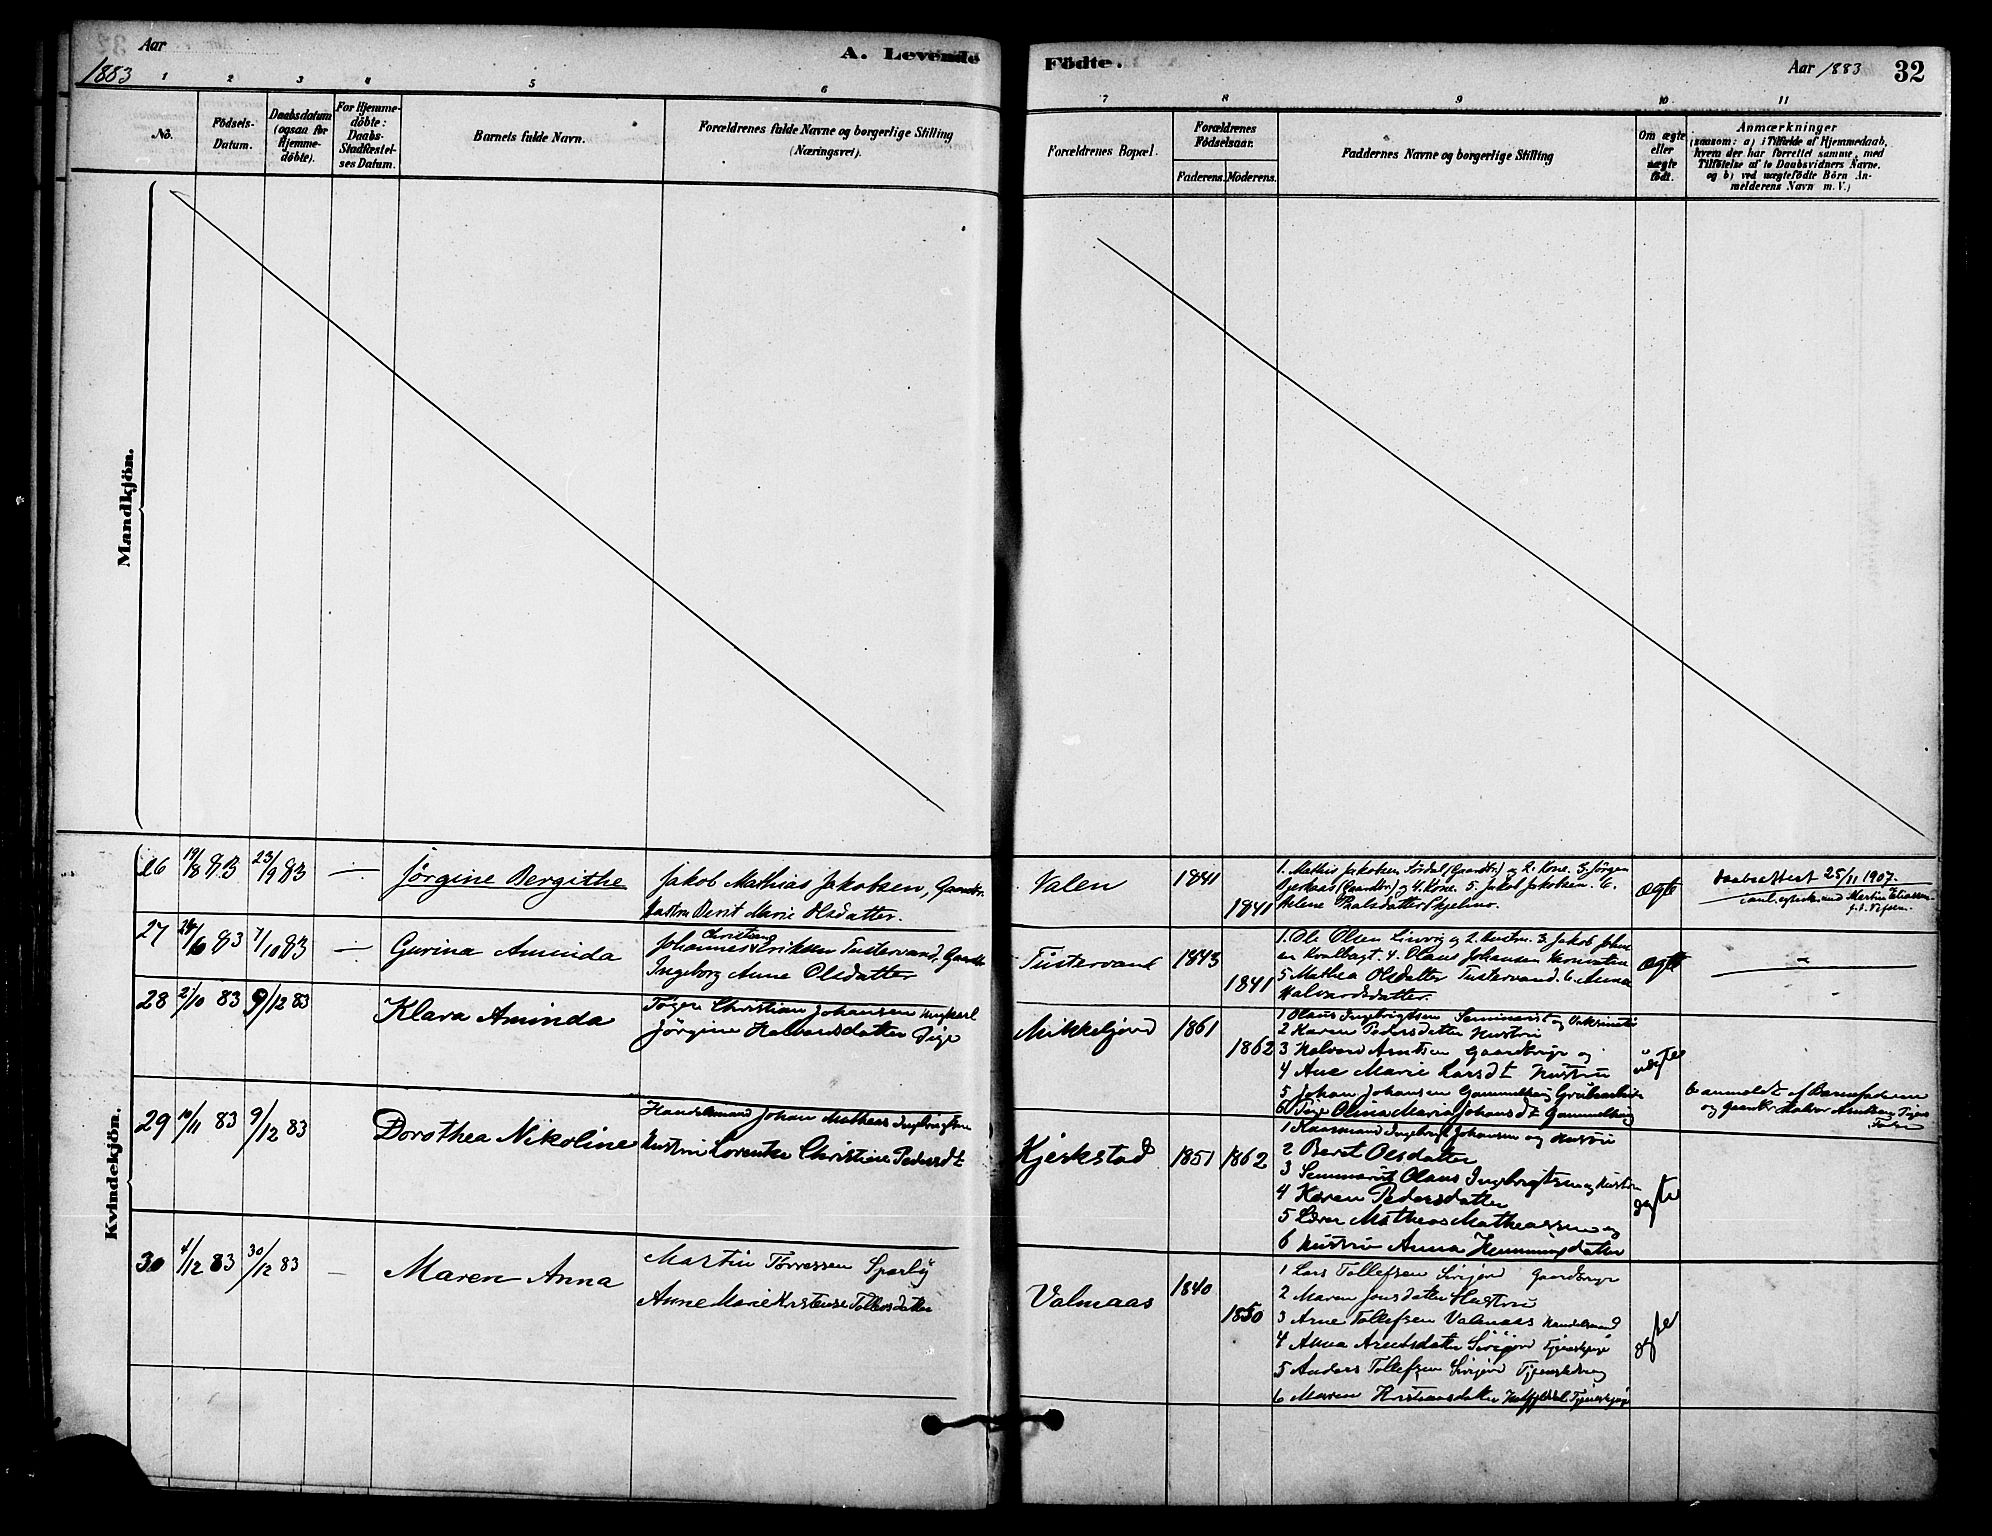 Aar
1883
A. Levende
Födte.
Aar 1883
32
1 2 3 4 5 6 7 8 9 10 11
No.
Födsels-Datum.
Daabsdatum (ogsaa for Hjemme-döbte).
For Hjemme-döbte: Daabs-Stadfæstel-ses Datum.
Barnets fulde Navn.
Forældrenes fulde Navne og borgerlige Stilling
(Næringsvei).
Forældrenes Bopæl.
Forældrenes Födselsaar.
Faderens. Moderens.
Faddernes Navne og borgerlige Stilling
Om ægte eller uægte födt.
Anmærkninger
(saasom: a) i Tilfælde af Hjemmedaab,
hvem der har forrettet samme, med
Tilföielse af to Daabsvidners Navne.
og b) ved uægtefödte Börn An-
melderens Navn m. V.)
Mandkjön.
Kvindekjön.
26 19/8 83 23/9 83 Jørgine Bergithe
Jakob Mathias Jakobsen, Gaardbr.
Hustru Berit Marie Olsdatter.
Valen 1841 1841
1. Mathis Jakobsen (Gaardbr) og 2. Kone. 3. Jørgen
(Gaardbr) og 4. Kone. 5. Jakob Jakobsen. 6.
Helene
ægte
Daabsattest 25/11 1907.
Martin Eliassen
27 7/10 83 Gurina Aminda
Johannes Christian Eriksen Tustervand, Gaardb
Ingeborg Anne Olsdatter
Tustervand 1843 1841
1. Ole Olsen og 2. Hustru. 3. Jakob Johan
4. Olaus Johansen
5. Mathea Olsdatter Tustervand. 6. Anna
Halvardsdatter.
ægte
28 2/10 83 9/12 83 Klara Aminda
Christian Johansen Ungkarl
Jørgine Halvardsdatter Pige
Mikkeljord 1861 1862
1 Olaus Ingebrigtsen Seminarist og
2 Karen Pedersdatter Hustru
3 Halvard Arntsen Gaardbruger og
4 Ane Marie Larsdt Hustru
5 Johan Johansen
6 Pige Olina Maria Johansdt
uægte
anmeldt af Barnefaderen
og Gaardbr Halvor Arntsen
29 10/11 83 9/12 83 Dorothea Nikoline
Handelsmand Johan Matheas Ingebrigtsen
Hustru Lorentse Christine Pedersdt
Kjerkstad 1851 1862
1 Ingebrigt Johansen og Hustru
2 Beret Olsdatter
3 Seminarist Olaus Ingebrigtsen og Hustru
4 Karen Pedersdatter
5 Lærer Matheas Matheassen og
6 Hustru Anna Hemmingsdatter
ægte
30 4/12 83 30/12 83 Maren Anna
Martin Torressen
Anne Marie Kristense Tollefsdatter
Valmaas 1840 1850
1 Lars Tollefsen Gaardbruger
2 Maren Jonsdatter Hustru
3 Arne Tollefsen Valmaas Handelsmand
4 Anna Arntsdatter Tjenestepige
5 Anders Tollefsen Tjenestedreng
6 Maren Kristiansdatter Tjenestepige
ægte